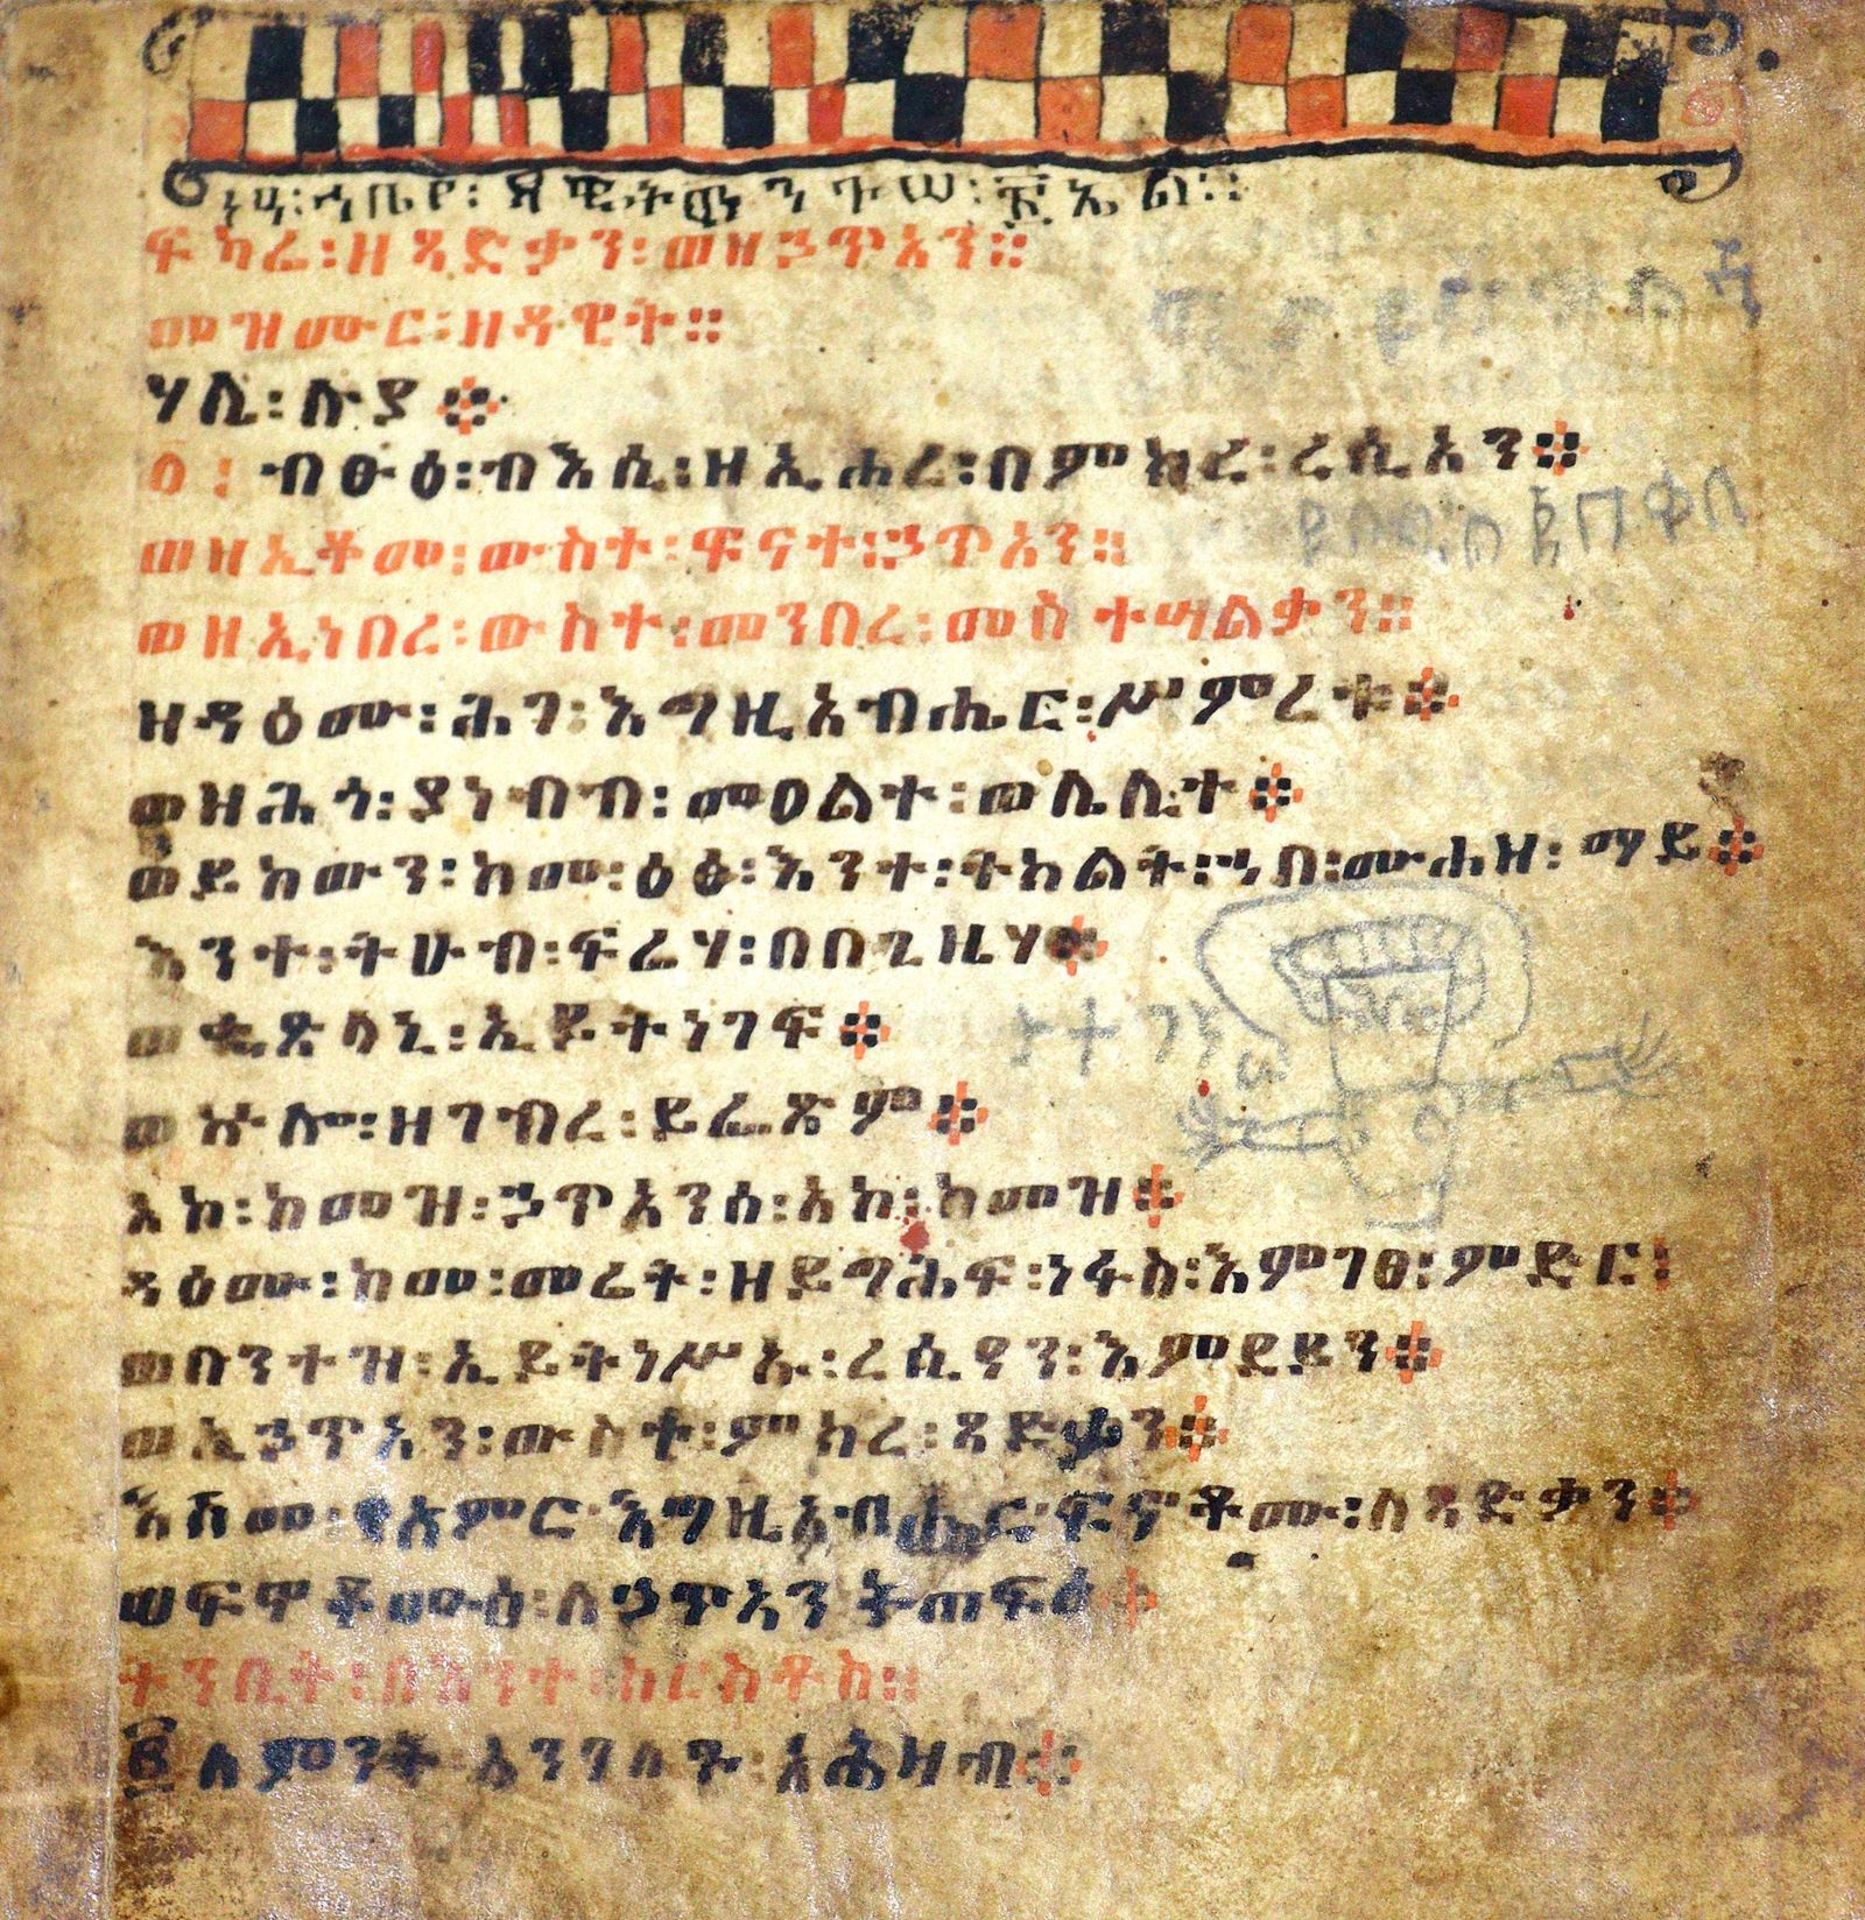 ፍካሬ፡ዘጻድቃን፡ወዘኃጥአን።
መዝሙር፡ዘዳዊት።
ሃሌ፡ሉያ
፩፡ብፁዕ፡ብእሲ፡ዘኢሐረ፡በምክረ፡ረሲአን
ወዘኢቆመ፡ውስተ፡ፍናተ፡ኃጥአን።
ወዘኢነበረ፡ውስተ፡መንበረ፡መስተሣልቃን።
ዘዳዕሙ፡ሕገ፡እግዚአብሔር፡ሥምረቱ
ወዝሕጎ፡ያነብብ፡መዐልተ፡ወሌሊተ
ወይከውን፡ከመ፡ዕፅ፡እንተ፡ትክልት፡ኀበ፡ሙሐዝ፡ማይ
እንተ፡ትሁብ፡ፍሬሃ፡በበጊዜሃ
ወቈጽላኒ፡ኢይትነገፍ
ወኵሎ፡ዘገብረ፡ይፌጽም
አኮ፡ከመዝ፡ኃጥአንሰ፡አኮ፡ከመዝ
ዳዕሙ፡ከመ፡መሬት፡ዘይግሕፍ፡ነፋስ፡እምገፀ፡ምድር፡
ወበንተዝ፡ኢይትነሥኡ፡ረሲዓን፡እምደይን
ወኢኃጥአን፡ውስተ፡ምክረ፡ጻድቃን
እስመ፡የአምር፡እግዚአብሔር፡ፍኖቶሙ፡ለጻድቃን
ወፍኖቶሙሰ፡ለኃጥአን ትጠፍዕ
ትንቢት፡በእንተ፡ክርስቶስ።
፪ ለምንት አንገለጉ፡አሕዛብ